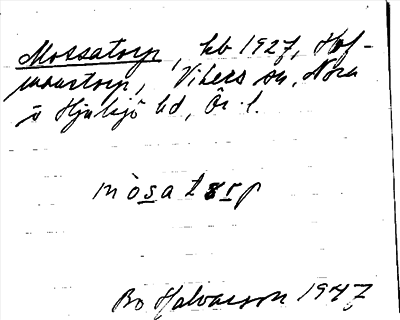 Mossatorp, kb 1927, Hof-
manstorp, Vikers sn, Nora
o Hjulsjö hd, Ör. l.
mòsatårp
Bo Halvarsson 1947